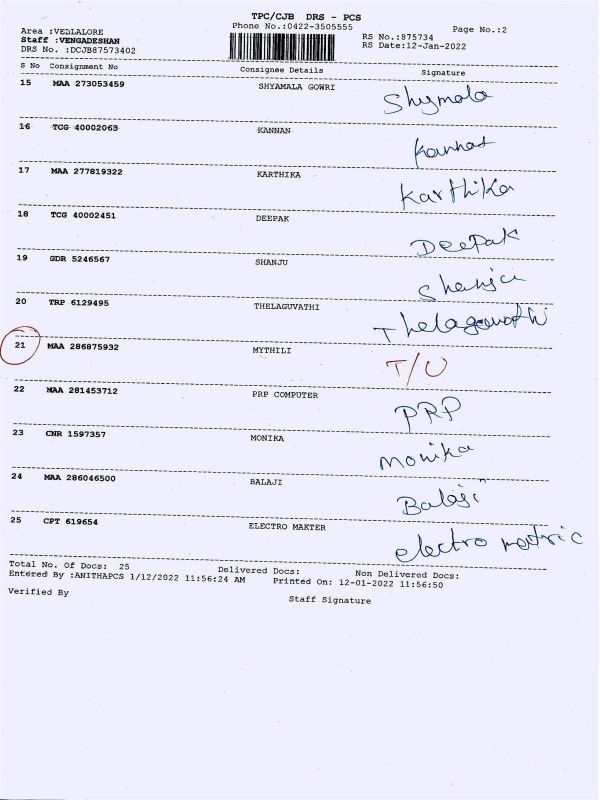 TPC/CJB DRS - PCS
Phone No.:0422-3505555 Page No.:2
Area :VEDLALORE
Staff :VENGADESHAN RS No.:875734
DRS No. :DCJB87573402 RS Date:12-Jan-2022
S No Consignment No Consignee Details Signature
15 MAA 273053459 SHYAMALA GOWRI Shymala
16 TCG 40002063 KANNAN Kannan
17 MAA 277819322 KARTHIKA Karthika
18 TCG 40002451 DEEPAK Deepak
19 GDR 5246567 SHANJU
20 TRP 6129495 THELAGUVATHI Thelaguvathi
21 MAA 286875932 MYTHILI T/U
22 MAA 281453712 PRP COMPUTER PRP
23 CNR 1597357 MONIKA Monika
24 MAA 286046500 BALAJI Balaji
25 CPT 619654 ELECTRO MAKTER electro
Total No. Of Docs: 25 Delivered Docs: Non Delivered Docs:
Entered By :ANITHAPCS 1/12/2022 11:56:24 AM Printed On: 12-01-2022 11:56:50
Verified By Staff Signature